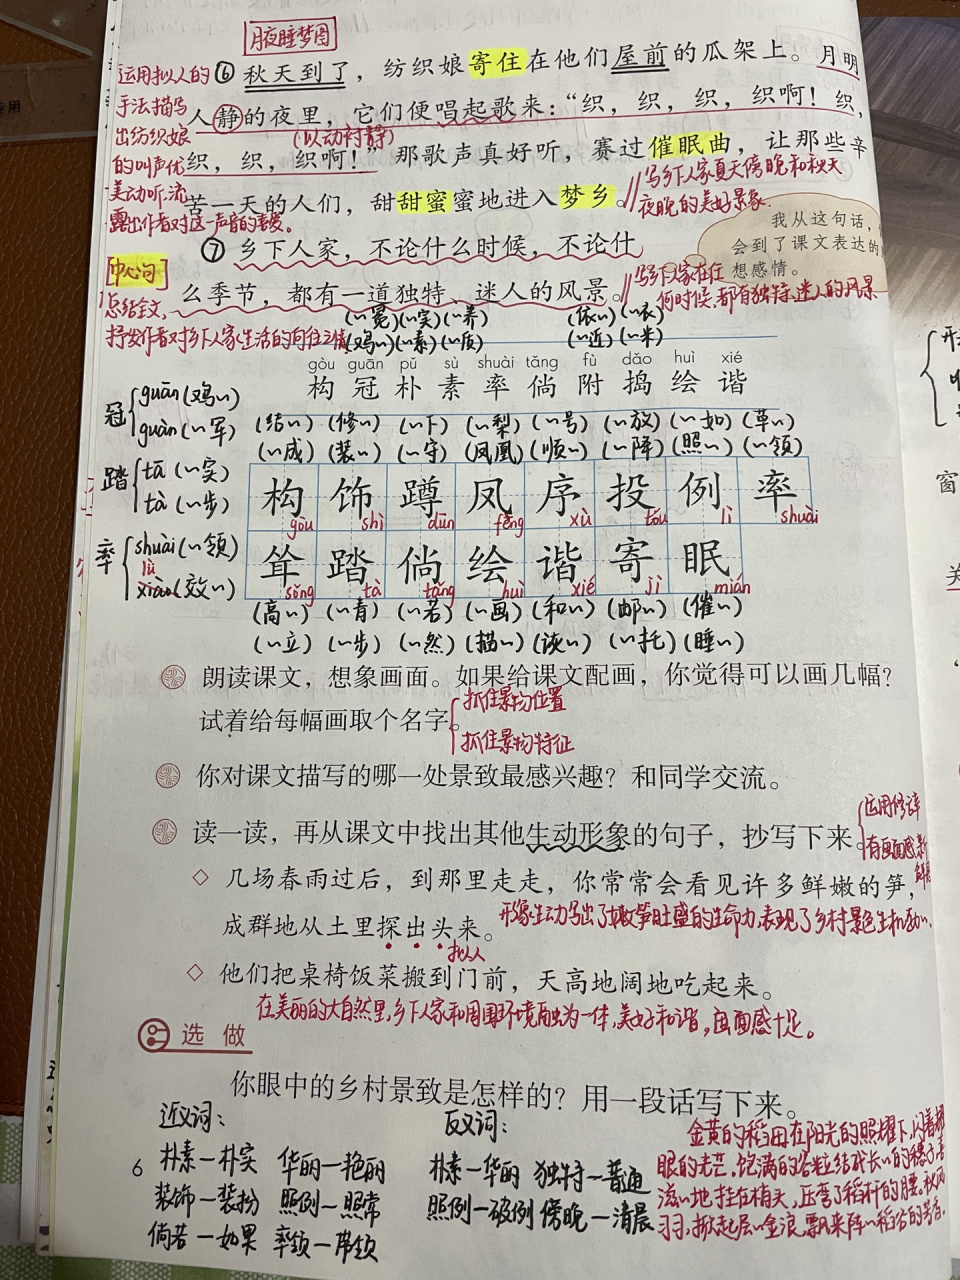 月夜睡梦图
运用拟人的
手法描写
出纺织娘
的叫声优
美动听,流
露出作者对这一声音的喜爱。
⑥ 秋天到了，纺织娘寄住在他们屋前的瓜架上。月明
人静的夜里，它们便唱起歌来：“织，织，织，织啊！织，
(以动衬静)
织，织，织啊！”那歌声真好听，赛过催眠曲，让那些辛
苦一天的人们，甜甜蜜蜜地进入梦乡。
写乡下人家夏天傍晚和秋天
夜晚的美好景象.
我从这句话，
会到了课文表达的
想感情。
⑦ 乡下人家，不论什么时候，不论什
么季节，都有一道独特、迷人的风景。
写乡下人家在任
何时候,都有独特、迷人的风景
[中心句]
总结全文,
抒发作者对乡下人家生活的向往之情
(〃冕)(〃实)(〃养) (依〃)(〃衣)
(鸡〃)(〃素)(〃质) (〃近)(〃米)
gòu guān pǔ sù shuài tǎng fù dǎo huì xié
构 冠 朴 素 率 倘 附 捣 绘 谐
冠 guān(鸡〃)
guàn(〃军)
踏 tā(〃实)
tà(〃步)
率 shuài(〃领)
lǜ
xiào(效〃)
(结〃)(修〃)(〃下)(〃梨)(〃号)(〃放)(〃如)(草〃)
(〃成)(装〃)(〃守)(凤凰)(顺〃)(〃降)(照〃)(〃领)
构 饰 蹲 凤 序 投 例 率
gòu shì dūn fèng xù tóu lì shuài
耸 踏 倘 绘 谐 寄 眠
sǒng tà tǎng huì xié jì mián
(高〃)(〃青)(〃若)(〃画)(和〃)(邮〃)(催〃)
(〃立)(〃步)(〃然)(描〃)(诙〃)(〃托)(睡〃)
朗读课文，想象画面。如果给课文配画，你觉得可以画几幅？
试着给每幅画取个名字。
抓住景物位置
抓住景物特征
你对课文描写的哪一处景致最感兴趣？和同学交流。
读一读，再从课文中找出其他生动形象的句子，抄写下来。
运用修辞
有画面感
◇ 几场春雨过后，到那里走走，你常常会看见许多鲜嫩的笋，
成群地从土里探出头来。
形象生动写出了嫩笋旺盛的生命力,表现了乡村景色生机勃〃.
拟人
◇ 他们把桌椅饭菜搬到门前，天高地阔地吃起来。
在美丽的大自然里,乡下人家和周围环境融为一体,美好和谐,画面感十足。
选 做
你眼中的乡村景致是怎样的？用一段话写下来。
近义词:
朴素—朴实 华丽—艳丽
装饰—装扮 照例—照常
倘若—如果 率领—带领
反义词:
朴素—华丽 独特—普通
照例—破例 傍晚—清晨
金黄的稻田在阳光的照耀下,闪着耀
眼的光芒.饱满的谷粒结成长〃的穗子,喜
滋〃地挂在梢头,压弯了稻秆的腰.秋风
习习,掀起层〃金浪,飘来阵〃稻谷的芳香.
6